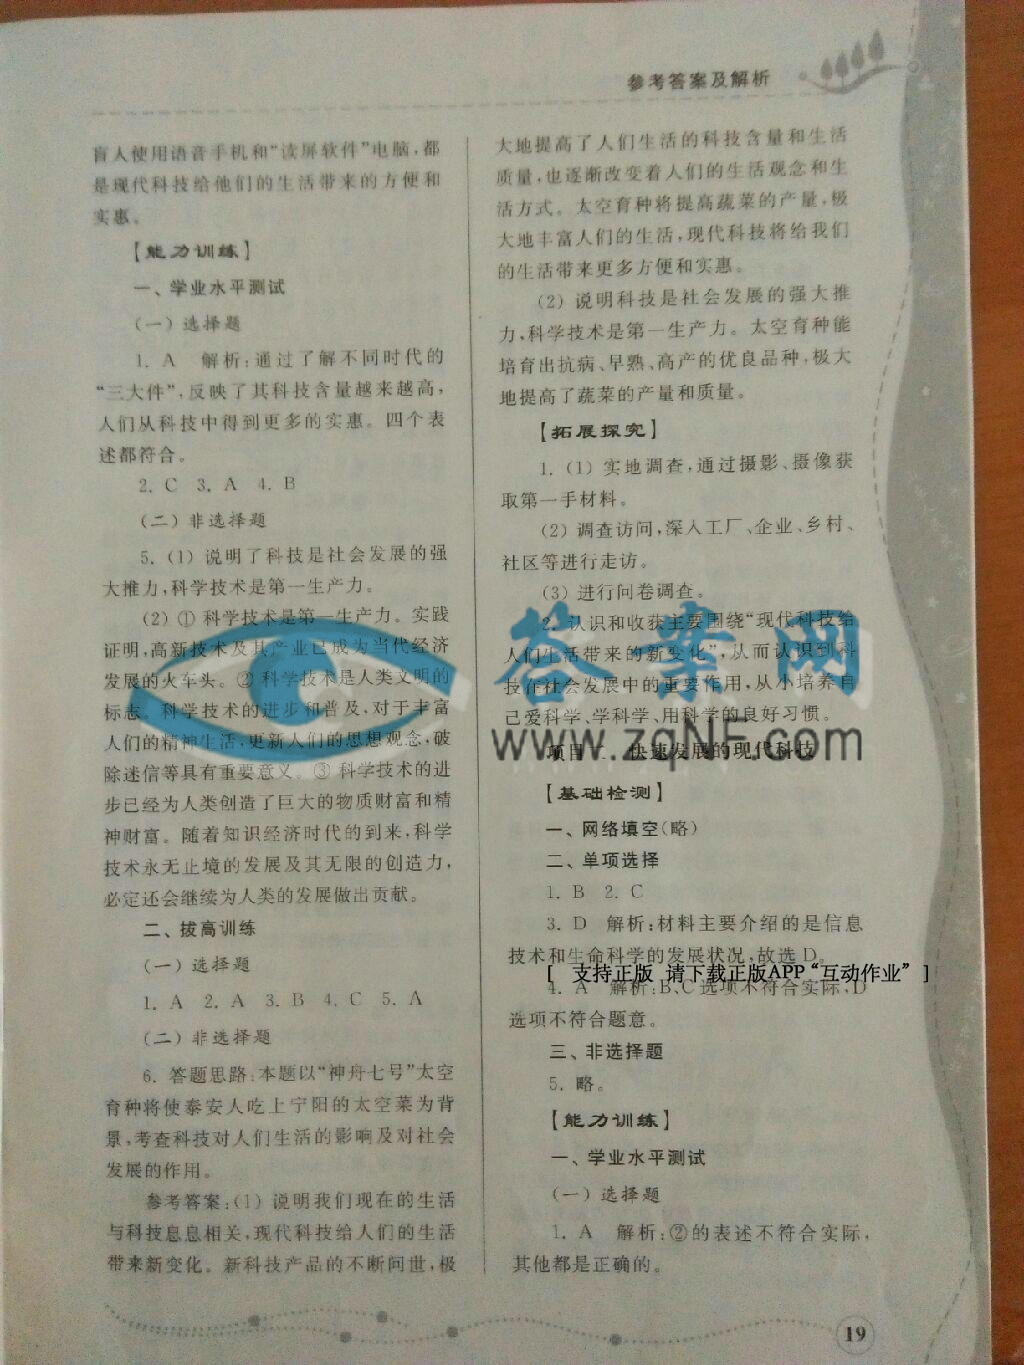 参考答案及解析
盲人使用语音手机和“读屏软件”电脑,都
是现代科技给他们的生活带来的方便和
实惠。
【能力训练】
一、学业水平测试
(一)选择题
1. A 解析:通过了解不同时代的
“三大件”,反映了其科技含量越来越高,
人们从科技中得到更多的实惠。四个表
述都符合。
2. C 3. A 4. B
(二)非选择题
5. (1) 说明了科技是社会发展的强
大推力,科学技术是第一生产力。
(2) ① 科学技术是第一生产力。实践
证明,高新技术及其产业已成为当代经济
发展的火车头。② 科学技术是人类文明的
标志。科学技术的进步和普及,对于丰富
人们的精神生活,更新人们的思想观念,破
除迷信等具有重要意义。③ 科学技术的进
步已经为人类创造了巨大的物质财富和精
神财富。随着知识经济时代的到来,科学
技术永无止境的发展及其无限的创造力,
必定还会继续为人类的发展做出贡献。
二、拔高训练
(一)选择题
1. A 2. A 3. B 4. C 5. A
(二)非选择题
6. 答题思路:本题以“神舟七号”太空
育种将使泰安人吃上宁阳的太空菜为背
景,考查科技对人们生活的影响及对社会
发展的作用。
参考答案:(1) 说明我们现在的生活
与科技息息相关,现代科技给人们的生活
带来新变化。新科技产品的不断问世,极
大地提高了人们生活的科技含量和生活
质量,也逐渐改变着人们的生活观念和生
活方式。太空育种将提高蔬菜的产量,极
大地丰富人们的生活,现代科技将给我们
的生活带来更多方便和实惠。
(2) 说明科技是社会发展的强大推
力,科学技术是第一生产力。太空育种能
培育出抗病、早熟、高产的优良品种,极大
地提高了蔬菜的产量和质量。
【拓展探究】
1. (1) 实地调查,通过摄影、摄像获
取第一手材料。
(2) 调查访问,深入工厂、企业、乡村、
社区等进行走访。
(3) 进行问卷调查。
2. 认识和收获主要围绕“现代科技给
人们生活带来的新变化”,从而认识到科
技在社会发展中的重要作用,从小培养自
己爱科学、学科学、用科学的良好习惯。
答案网
www.zqNF.com
项目 快速发展的现代科技
【基础检测】
一、网络填空(略)
二、单项选择
1. B 2. C
3. D 解析:材料主要介绍的是信息
技术和生命科学的发展状况,故选 D。
[ 支持正版 请下载正版APP“互动作业” ]
4. A 解析:B、C 选项不符合实际,D
选项不符合题意。
三、非选择题
5. 略。
【能力训练】
一、学业水平测试
(一)选择题
1. A 解析:②的表述不符合实际,
其他都是正确的。
19